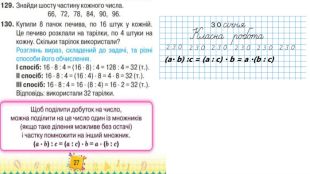 129. Знайди шосту частину кожного числа.
66, 72, 78, 84, 90, 96.
130. Купили 8 пачок печива, по 16 штук у кожній.
Це печиво розклали на тарілки, по 4 штуки на
кожну. Скільки тарілок використали?
Розглянь вираз, складений до задачі, та різні
способи його обчислення.
I спосіб: 16 · 8 : 4 = (16 · 8) : 4 = 128 : 4 = 32 (т.).
II спосіб: 16 · 8 : 4 = (16 : 4) · 8 = 4 · 8 = 32 (т.).
III спосіб: 16 · 8 : 4 = 16 · (8 : 4) = 16 · 2 = 32 (т.).
Відповідь: використали 32 тарілки.
Щоб поділити добуток на число,
можна поділити на це число один із множників
(якщо таке ділення можливе без остачі)
і частку помножити на інший множник.
(a · b) : c = (a : c) · b = a · (b : c)
27
30 січня
Класна робота
230 230 230 230 230 230
(a· b) :c = (a : c) · b = a ·(b : c)